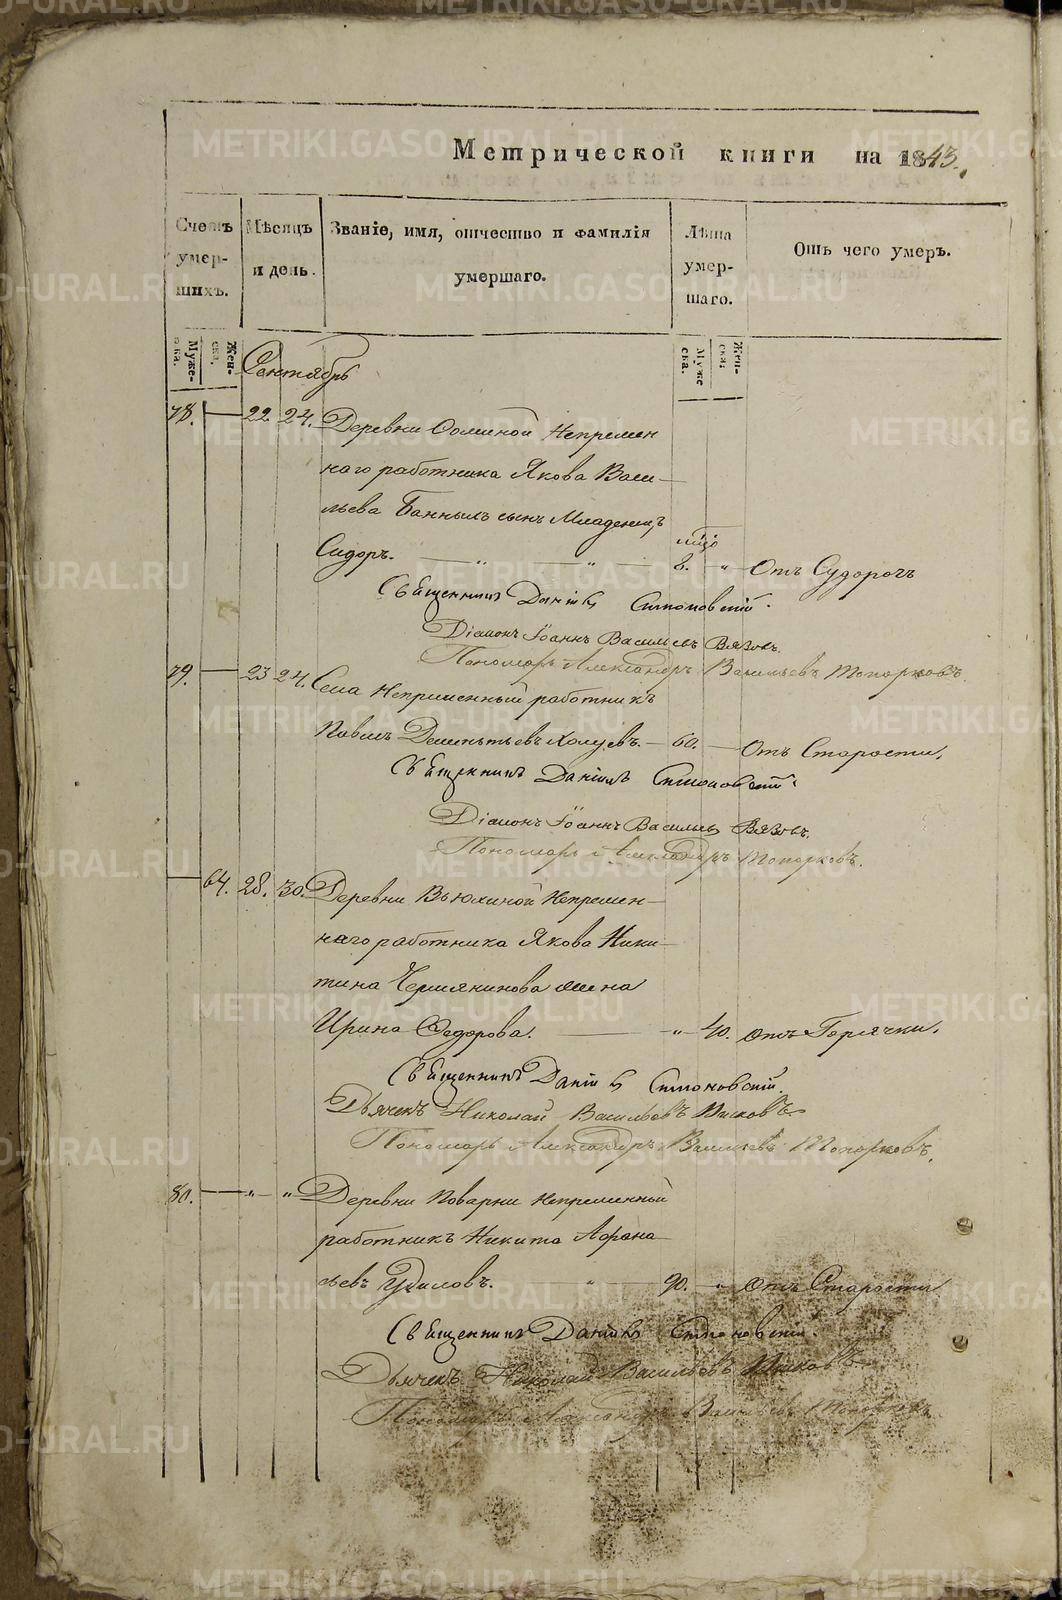 METRIKI.GASO-URAL.RU
Метрической книги на 1843.
Счетъ умер- шихъ.
Мѣсяцъ и день.
Званіе, имя, отчество и фамилія умершаго.
Лѣта умер- шаго.
Отъ чего умеръ.
Муже- ска.
Жен- ска.
Муже ска.
Жен- ска.
Сентябрь
78. — 22. 24. Деревни Соминой Непремен
наго работника Якова Васи-
льева сынъ Младенецъ
Сидоръ. — " — " — 8. " Отъ Судорогъ
Священникъ Даніилъ Симоновскій.
Діаконъ Іоаннъ Васильевъ Вязовъ.
Пономарь Александръ Васильевъ Топорковъ.
79. — 23 24. Села Непременный работникъ
Павелъ Дементьевъ — 60. — Отъ Старости.
Священникъ Даніилъ Симоновскій.
Діаконъ Іоаннъ Васильевъ Вязовъ.
Пономарь Александръ Топорковъ.
— 64. 28. 30. Деревни Вьюхиной Непремен-
наго работника Якова Ники-
тина жена
Ирина Федорова. — " 40. отъ Горячки.
Священникъ Даніилъ Симоновскій.
Дьячекъ Николай Васильевъ
Пономарь Александръ Васильевъ Топорковъ.
80. — " — " Деревни Поварни Непременный
работникъ Никита Афана
сьевъ — " — 90. " отъ Старости
Священникъ Даніилъ Симоновскій.
Дьячекъ Николай Васильевъ
Пономарь Александръ Васильевъ Топорковъ.